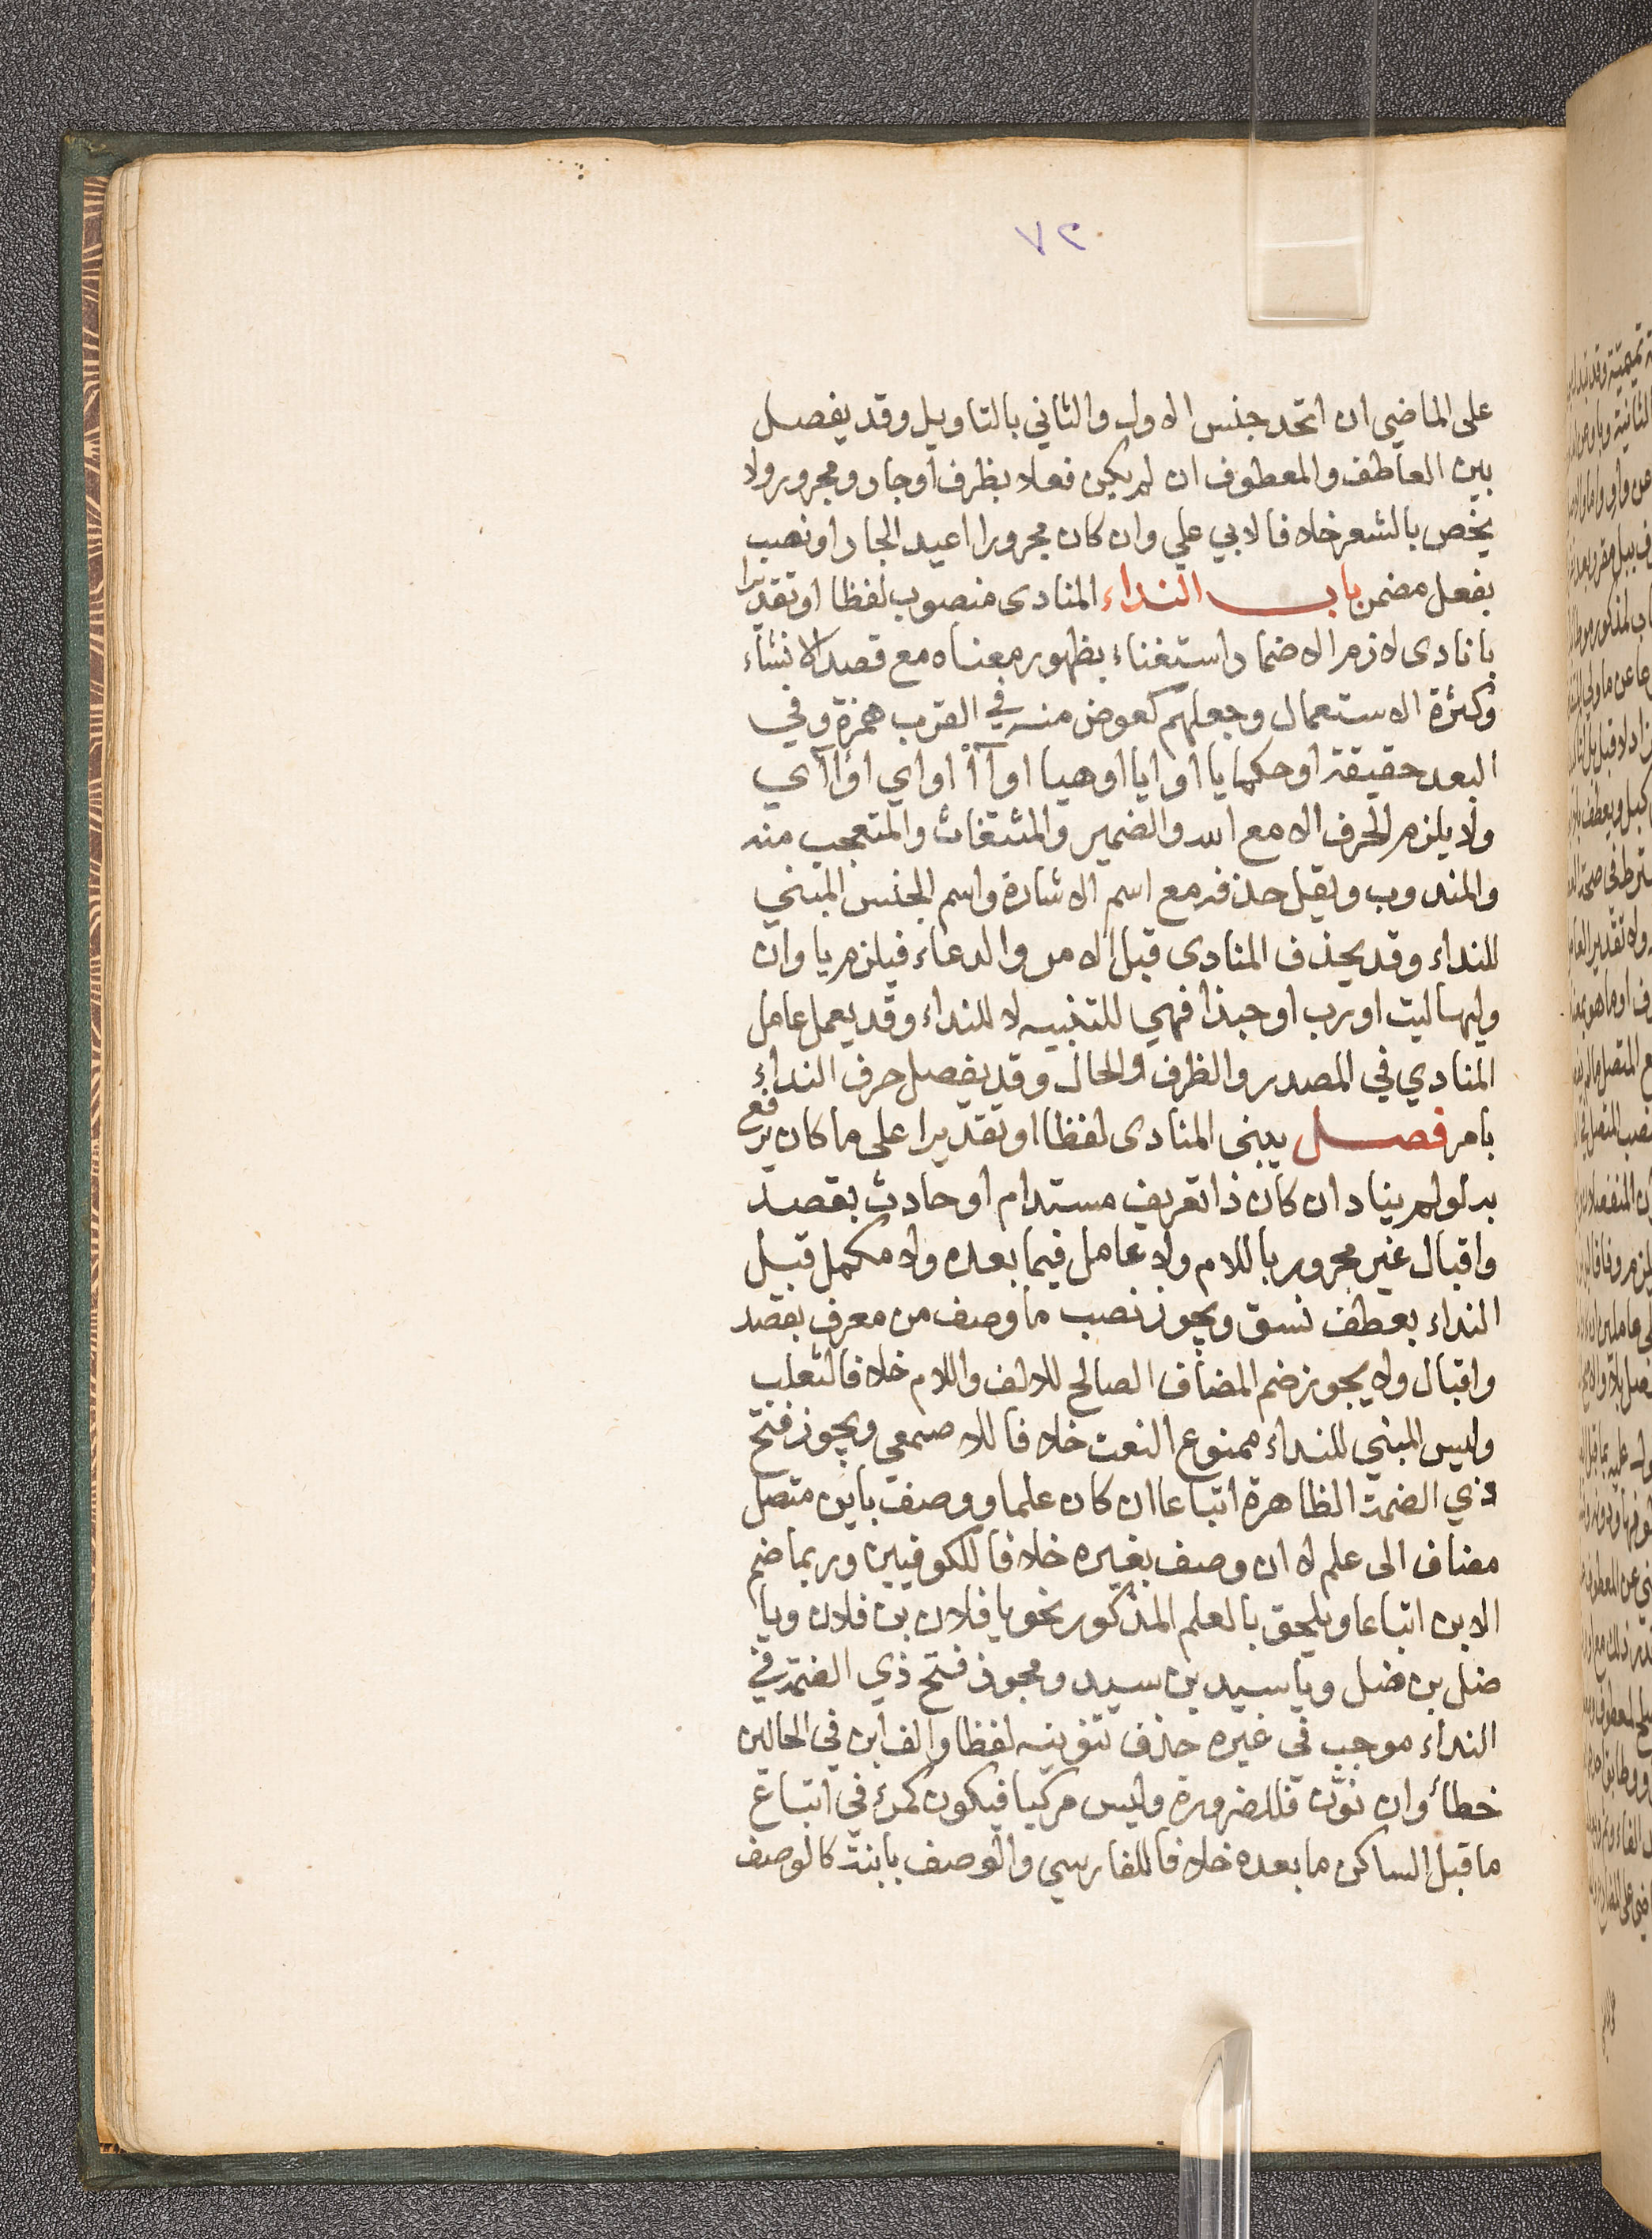 ٧٢
على الماضي ان اتحد جنس الاول والثاني بالتاويل وقد يفصل
بين العاطف والمعطوف ان لم يكن فعلا بظرف او جار ومجرور ولا
يخص بالشعر خلافا لابي علي وان كان مجرورا اعيد الجار او نصب
بفعل مضمن باب النداء المنادى منصوب لفظا او تقديرا
بانادى لازم الاضمار استغناء بظهور معناه مع قصد الانشاء
وكثرة الاستعمال وجعلهم كعوض منه في القرب همزة وفي
البعد حقيقة او حكما يا او ايا او هيا او آ أ او اي او اآي
ولا يلزم الحرف الا مع الله والضمير والمستغاث والمتعجب منه
والمندوب ويقل حذفه مع اسم الاشارة واسم الجنس المبني
للنداء وقد يحذف المنادى قبل الامر والدعاء فيلزم يا وان
وليها ليت او رب او حبذا فهي للتنبيه لا للنداء وقد يعمل عامل
المنادي في المصدر والظرف والحال وقد يفصل حرف النداء
بامر فصل يبنى المنادى لفظا او تقديرا على ما كان يرفع
به لو لم يناد ان كان ذا تعريف مستدام او حادث بقصد
واقبال غير مجرور باللام ولا عامل فيما بعده ولا مكمل قبل
النداء بعطف نسق ويجوز نصب ما وصف من معرف بقصد
واقبال ولا يجوز ضم المضاف الصالح للالف واللام خلافا لثعلب
وليس المبني للنداء ممنوع النعت خلافا للاصمعي ويجوز فتح
ذي الضمة الظاهرة اتباعا ان كان علما ووصف بابن متصل
مضاف الى علم لا ان وصف بغيره خلافا للكوفيين وربما ضم
الابن اتباعا ويلحق بالعلم المذكور نحو يا فلان بن فلان ويا
ضل بن ضل ويا سيد بن سيد ومجوز فتح ذي الضمة في
النداء موجب في غيره حذف تنوينه لفظا والف ابن في الحالين
خطأ وان نون فللضرورة وليس مركبا فيكون كمرء في اتباع
ما قبل الساكن ما بعده خلافا للفارسي والوصف بابنة كالوصف